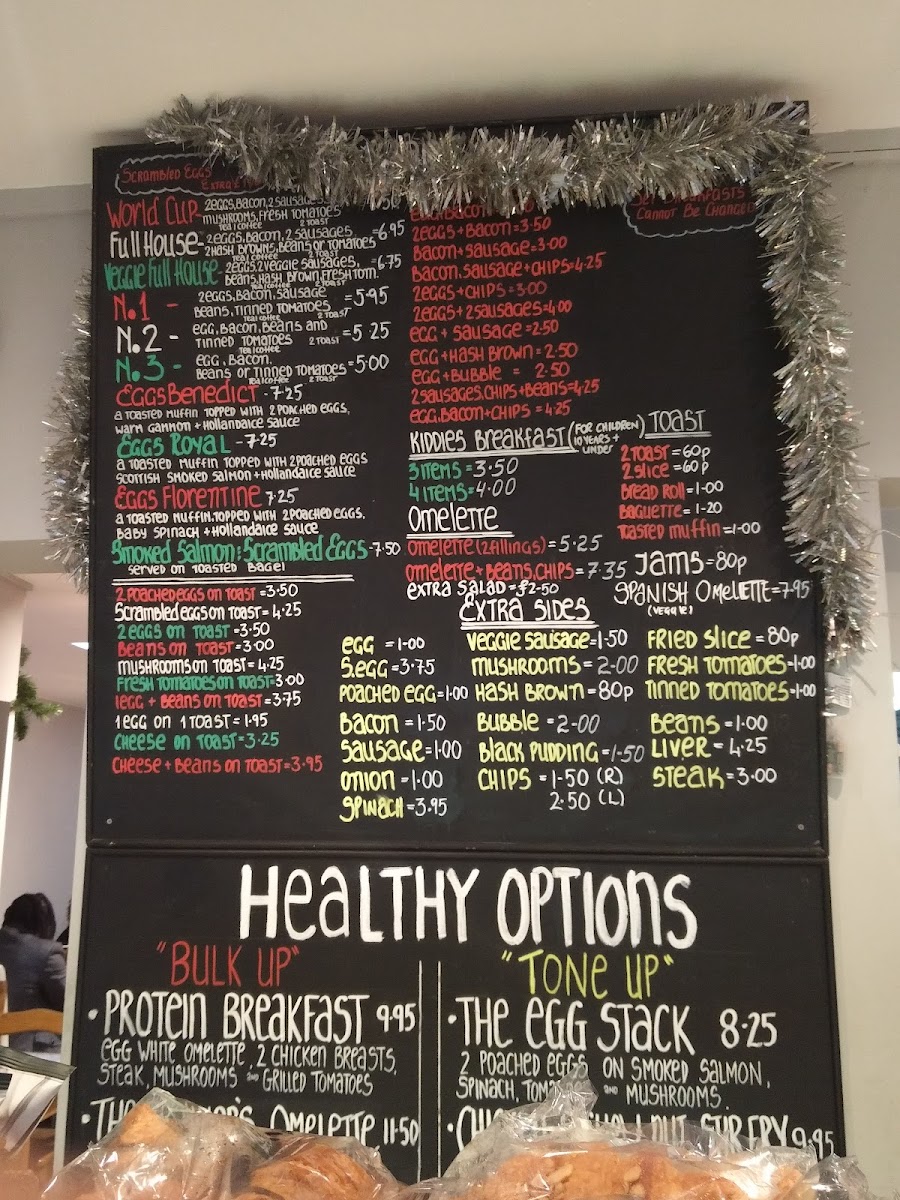 SCRAMBLED EGGS
EXTRA
World Cup- 2eggs, Bacon, 2 sausages 50
mushrooms, fresh tomatoes
Tea/coffee 2 Toast
Full House- 2eggs, Bacon, 2 sausages, =6.95
2 Hash Browns, Beans or Tomatoes
Tea/coffee 2 Toast
Veggie Full House- 2eggs, 2 veggie sausages, =6.75
Beans, Hash Brown, Fresh Tom.
Tea/coffee 2 Toast
N.1 - 2eggs, Bacon, sausage =5.95
Beans, Tinned Tomatoes
Tea/coffee 2 Toast
N.2 - egg, Bacon, Beans and =5.25
Tinned Tomatoes 2 Toast
Tea/coffee
N.3 - egg, Bacon.
Beans or Tinned Tomatoes =5.00
Tea/coffee 2 Toast
Eggs Benedict - 7.25
a toasted muffin topped with 2 poached eggs,
warm gammon + Hollandaice sauce
Eggs Royal - 7.25
a toasted muffin topped with 2 poached eggs
scottish smoked salmon + Hollandaice sauce
Eggs Florentine 7.25
a toasted muffin, topped with 2 poached eggs,
baby spinach + Hollandaice sauce
Smoked Salmon: Scrambled Eggs -7.50
served on toasted bagel
2 poached eggs on toast =3.50
Scrambled eggs on toast = 4.25
2 eggs on toast =3.50
Beans on toast = 3.00
mushrooms on toast = 4.25
Fresh tomatoes on toast=3.00
1egg + Beans on toast=3.75
1 egg on 1 toast = 1.95
Cheese on toast=3.25
Cheese + Beans on toast=3.95
Set Breakfasts
Cannot Be Changed
egg, Bacon
2eggs + Bacon = 3.50
Bacon + sausage = 3.00
Bacon, sausage + CHIPS=4.25
2eggs + CHIPS = 3.00
2eggs + 2sausages=4.00
egg + sausage =2.50
egg + Hash Brown = 2.50
egg + Bubble = 2.50
2sausages, CHIPS + Beans=4.25
egg, Bacon + CHIPS = 4.25
Kiddies Breakfast (for children 10 years + under)
3 items = 3.50
4 items = 4.00
Omelette
omelette (2fillings) = 5.25
omelette + Beans, CHIPS = 7.35
extra salad = £2.50
Toast
2 toast = 60p
2 slice = 60p
Bread Roll = 1.00
Baguette = 1.20
Toasted muffin=1.00
Jams = 80p
Spanish omelette=7.95
(veggie)
Extra Sides
egg = 1.00
S.egg = 3.75
Poached egg=1.00
Bacon = 1.50
Sausage=1.00
onion = 1.00
Spinach = 3.95
Veggie sausage=1.50
mushrooms = 2.00
Hash Brown = 80p
Bubble = 2.00
Black Pudding =1.50
CHIPS = 1.50 (R)
2.50 (L)
Fried slice = 80p
Fresh tomatoes=1.00
Tinned tomatoes=1.00
Beans = 1.00
Liver = 4.25
Steak = 3.00
Healthy Options
"Bulk Up"
• Protein Breakfast 9.95
egg white omelette, 2 chicken breasts,
steak, mushrooms and grilled tomatoes
Omelette, 11.50
"Tone Up"
• The Egg Stack 8.25
2 poached eggs on smoked salmon,
spinach, and mushrooms.
Stir Fry 9.95